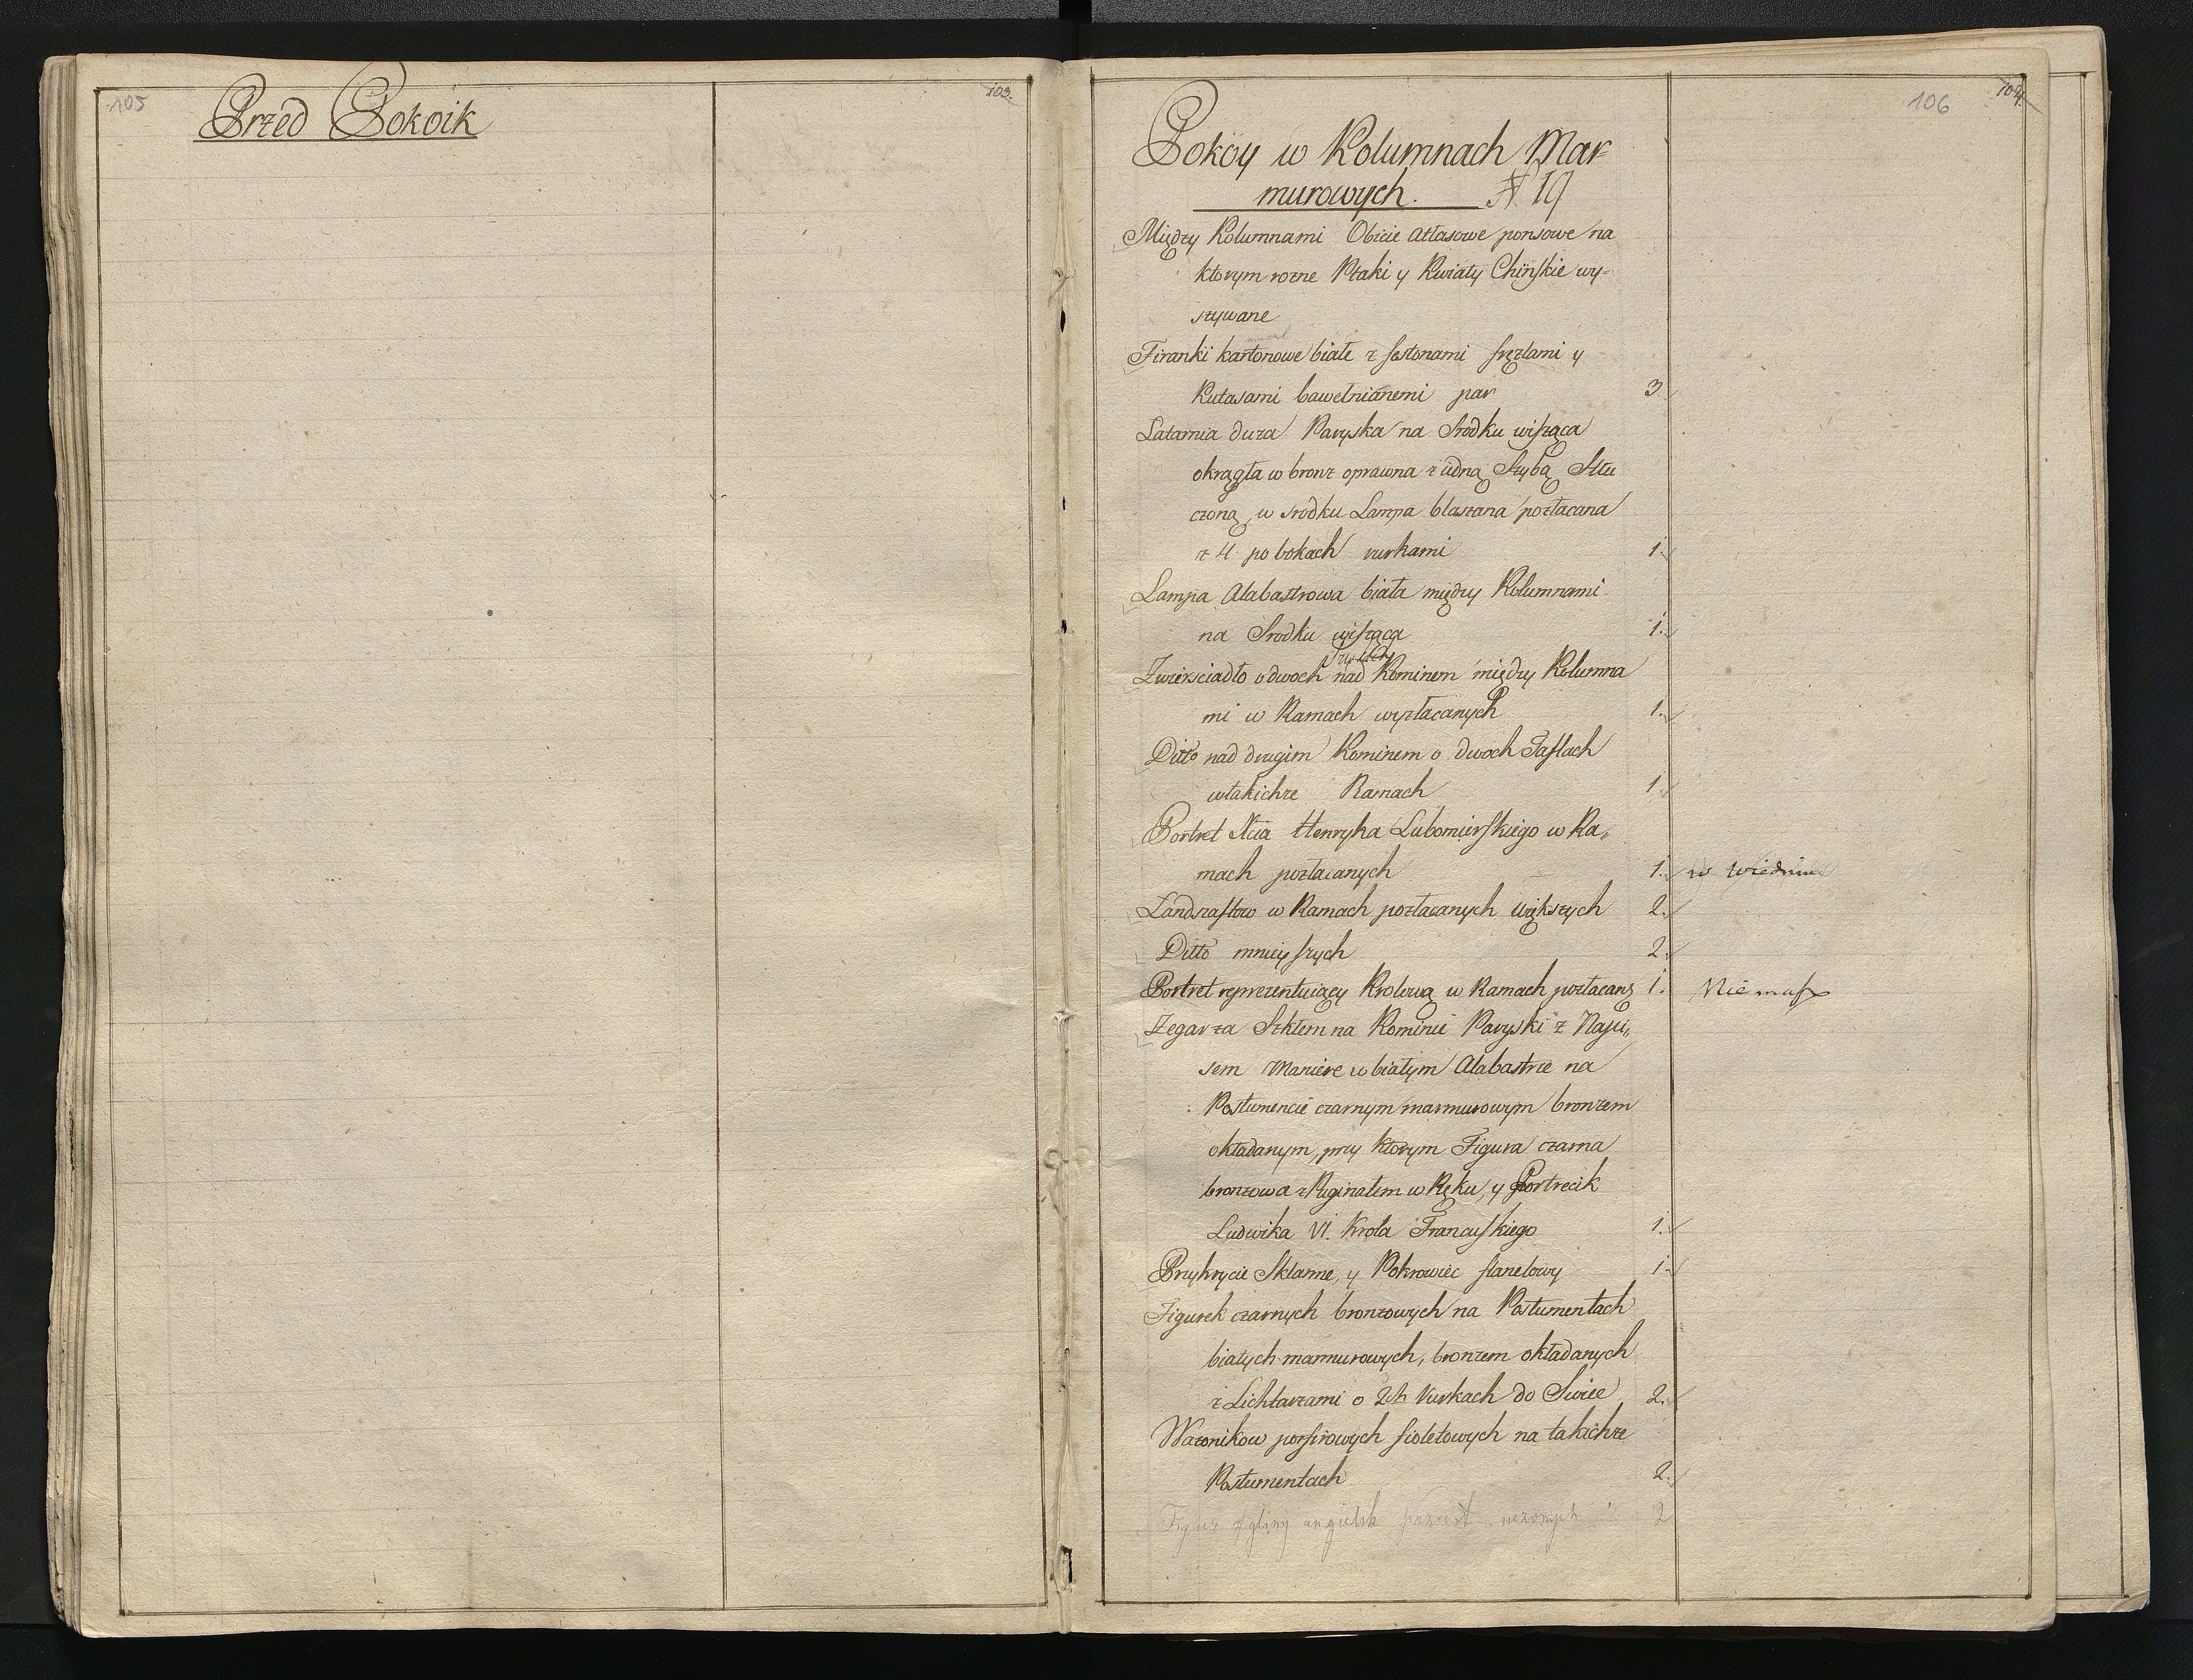 105
103.
Przed Pokoik
106
104.
Pokoy w Kolumnach Mar-
murowych. N 19
Między Kolumnami Obicie atłasowe ponsowe na
ktorym rozne Ptaki y Kwiaty Chińskie wy-
szywane
Firanki kartonowe białe z festonami fręzlami y
Kutasami bawełnianemi par 3
Latarnia duza Paryska na Srodku wisząca
okrągła w bronz oprawna z iedną Szybą Stłu
czoną, w srodku Lampa blaszana pozłacana
z 4 po bokach rurkami 1.
Lampa Alabastrowa biała między Kolumnami
na Srodku wisząca 1.
Sztukach
Zwierściadło o dwoch nad Kominem między Kolumna
mi w Ramach wyzłacanych 1.
Ditto nad drugim Kominem o dwoch Taflach
w takichze Ramach 1
Portret Xcia Henryka Lubomirskiego w Ra„
mach pozłacanych 1. w Wiedniu
Landszaftow w Ramach pozłacanych większych 2.
Ditto mnieyszych 2.
Portret reprezentuiący Krolową w Ramach pozłacany 1. Nie masz
Zegar za Szkłem na Kominie Paryski z Napi„
sem Maniere w białym Alabastrze na
Postumencie czarnym marmurowym bronzem
okładanym, przy ktorym Figura czarna
bronzowa z Puginałem w Ręku, y Portrecik
Ludwika VI. Krola Francuskiego 1.
Przykrycie Sklanne, y Pokrowiec flanelowy 1.
Figurek czarnych bronzowych na Postumentach
białych marmurowych, bronzem okładanych
z Lichtarzami o 2ch Rurkach do Swiec 2.
Wazonikow porfirowych fioletowych na takichze
Postumentach 2.
Figur z gliny angielsk 2